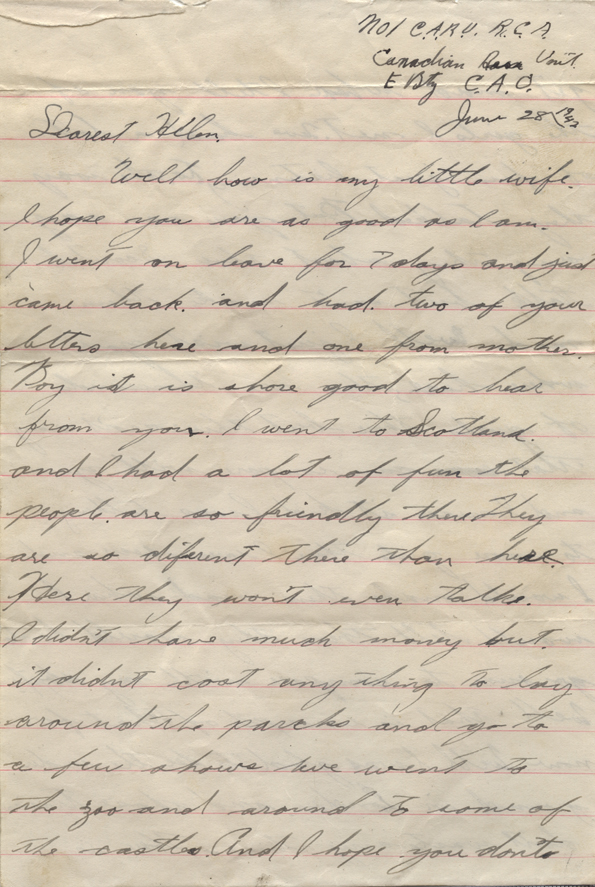 No1 C.A.R.U. R.C.A.
Canadian Unit.
E Bty C.A.O.
June 28
Dearest Hellen.
Well how is my little wife.
I hope you are as good as I am.
I went on leave for 7 days and just
came back. and had. two of your
letters here and one from mother.
Boy it is shore good to hear
from you. I went to Scotland.
and I had a lot of fun the
people. are so friendly there They
are so diferent there than here.
Here they won't even talke.
I didn't have much money but.
it didnt cost any thing to lay
around the parcks and go to
a few shows we went to
the zoo and around to some of
the castles. And I hope you dont